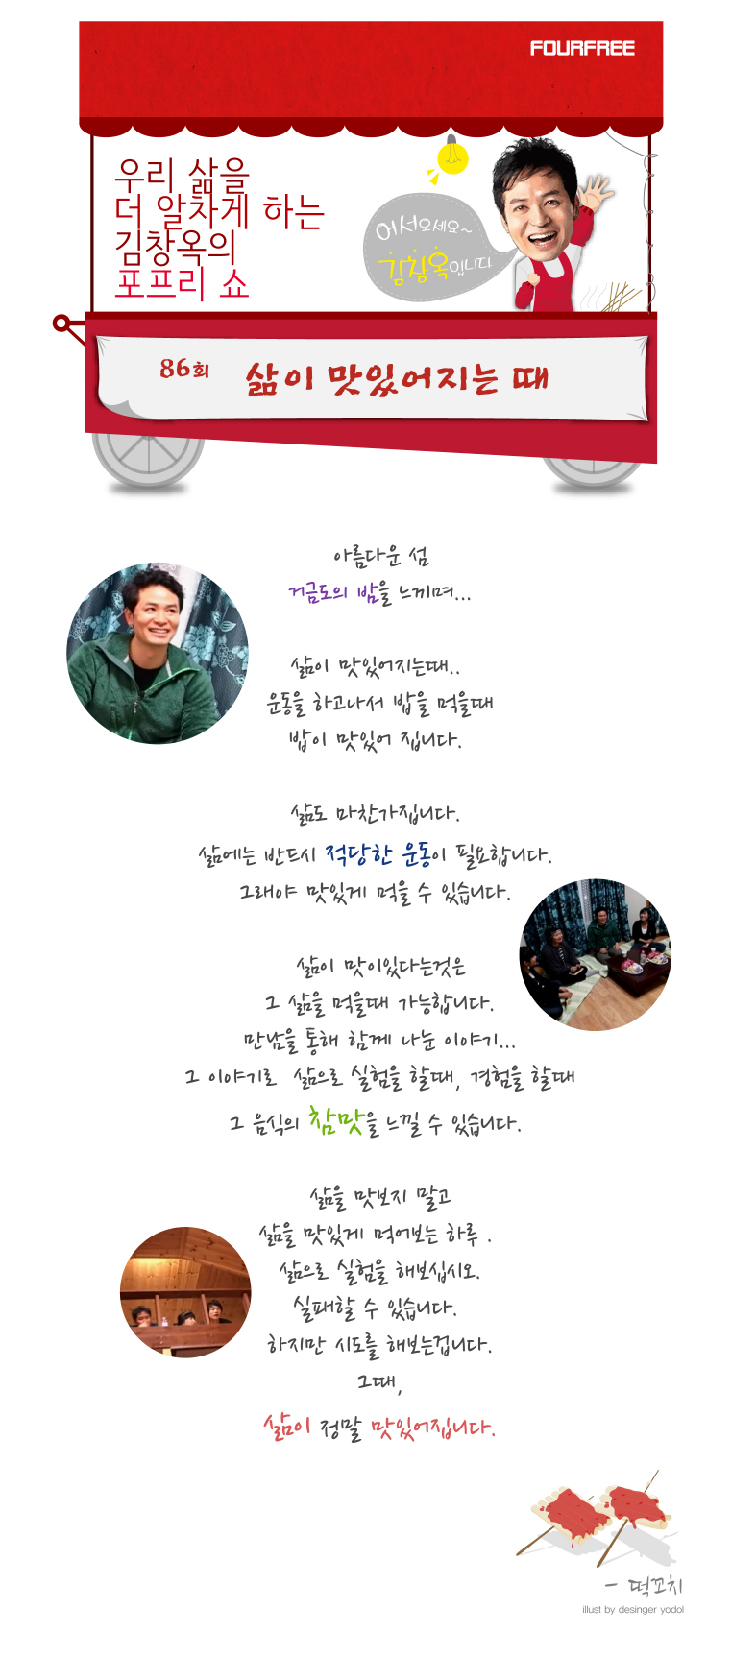 FOURFREE
우리 삶을
더 알차게 하는
김창옥의
포프리 쇼
어서오세요~
김창옥입니다
86회 삶이 맛있어지는 때
아름다운 섬
거금도의 밤을 느끼며...
삶이 맛있어지는때..
운동을 하고나서 밥을 먹을때
밥이 맛있어 집니다.
삶도 마찬가집니다.
삶에는 반드시 적당한 운동이 필요합니다.
그래야 맛있게 먹을 수 있습니다.
삶이 맛이있다는것은
그 삶을 먹을때 가능합니다.
만남을 통해 함께 나눈 이야기...
그 이야기로 삶으로 실험을 할때, 경험을 할때
그 음식의 참맛을 느낄 수 있습니다.
삶을 맛보지 말고
삶을 맛있게 먹어보는 하루 .
삶으로 실험을 해보십시오.
실패할 수 있습니다.
하지만 시도를 해보는겁니다.
그때,
삶이 정말 맛있어집니다.
- 떡꼬치
illust by desinger yodol